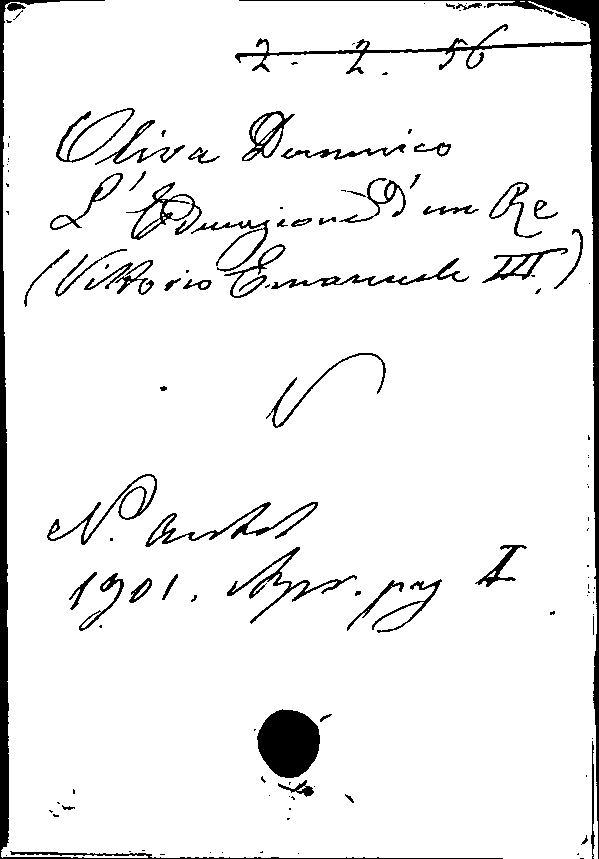 2. 2. 56
Oliva Domenico
L'Educazione d'un Re
(Vittorio Emanuele III.)
N. Antol
1901. Apr. pag I